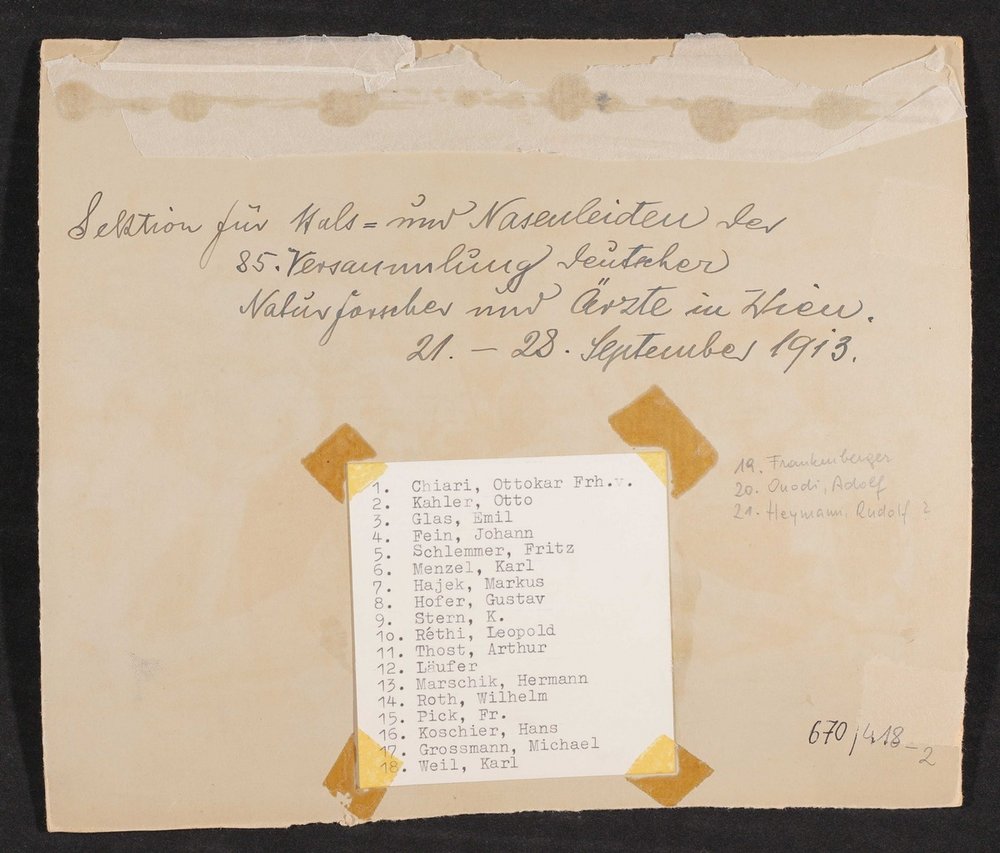 Sektion für Hals= und Nasenleiden der
85. Versammlung deutscher
Naturforscher und Ärzte in Wien.
21. – 28. September 1913.
1. Chiari, Ottokar Frh.v.
2. Kahler, Otto
3. Glas, Emil
4. Fein, Johann
5. Schlemmer, Fritz
6. Menzel, Karl
7. Hajek, Markus
8. Hofer, Gustav
9. Stern, K.
1o. Réthi, Leopold
11. Thost, Arthur
12. Läufer
13. Marschik, Hermann
14. Roth, Wilhelm
15. Pick, Fr.
16. Koschier, Hans
17. Grossmann, Michael
18. Weil, Karl
19. Frankenberger
20. Onodi, Adolf
21. Heymann, Rudolf ?
670/418-2